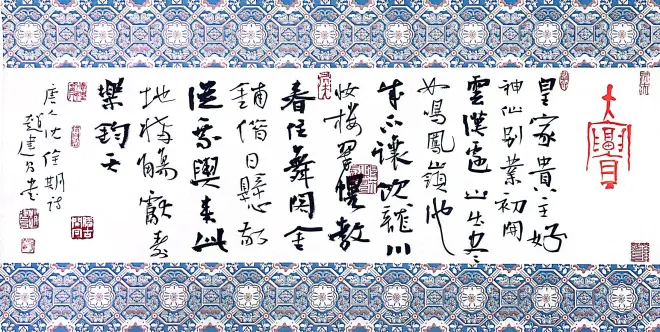 皇家貴主好
神仙別業初開
雲漢邊山出盡
如鳴鳳嶺池
成不讓飲龍川
妝樓翠幌教
春住舞閣金
鋪借日懸敬
從乘輿來此
地稱觴獻壽
樂鈞天
唐人沈佺期詩
趙建